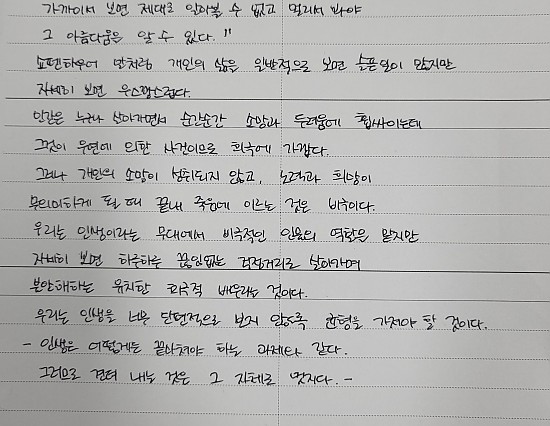 가까이서 보면 제대로 알아볼 수 없고 멀리서 봐야
그 아름다움은 알 수 있다."
쇼펜하우어 말처럼 개인의 삶은 일반적으로 보면 슬픈 일이 많지만
자세히 보면 우스꽝스럽다.
인간은 누구나 살아가면서 순간순간 소망과 두려움에 휩싸이는데
그것이 우연에 의한 사건이므로 희극에 가깝다.
그러나 개인의 소망이 성취되지 않고, 노력과 희망이
무의미하게 될 때 끝내 죽음에 이르는 것은 비극이다.
우리는 인생이라는 무대에서 비극적인 인물의 역할은 맡지만
자세히 보면 하루하루 끊임없는 걱정거리로 살아가며
불안해하는 유치한 희극적 배우라는 것이다.
우리는 인생을 너무 단편적으로 보지 않도록 균형을 가져야 할 것이다.
- 인생은 어떻게든 끝마쳐야 하는 과제와 같다.
그러므로 견뎌 내는 것은 그 자체로 멋지다. -